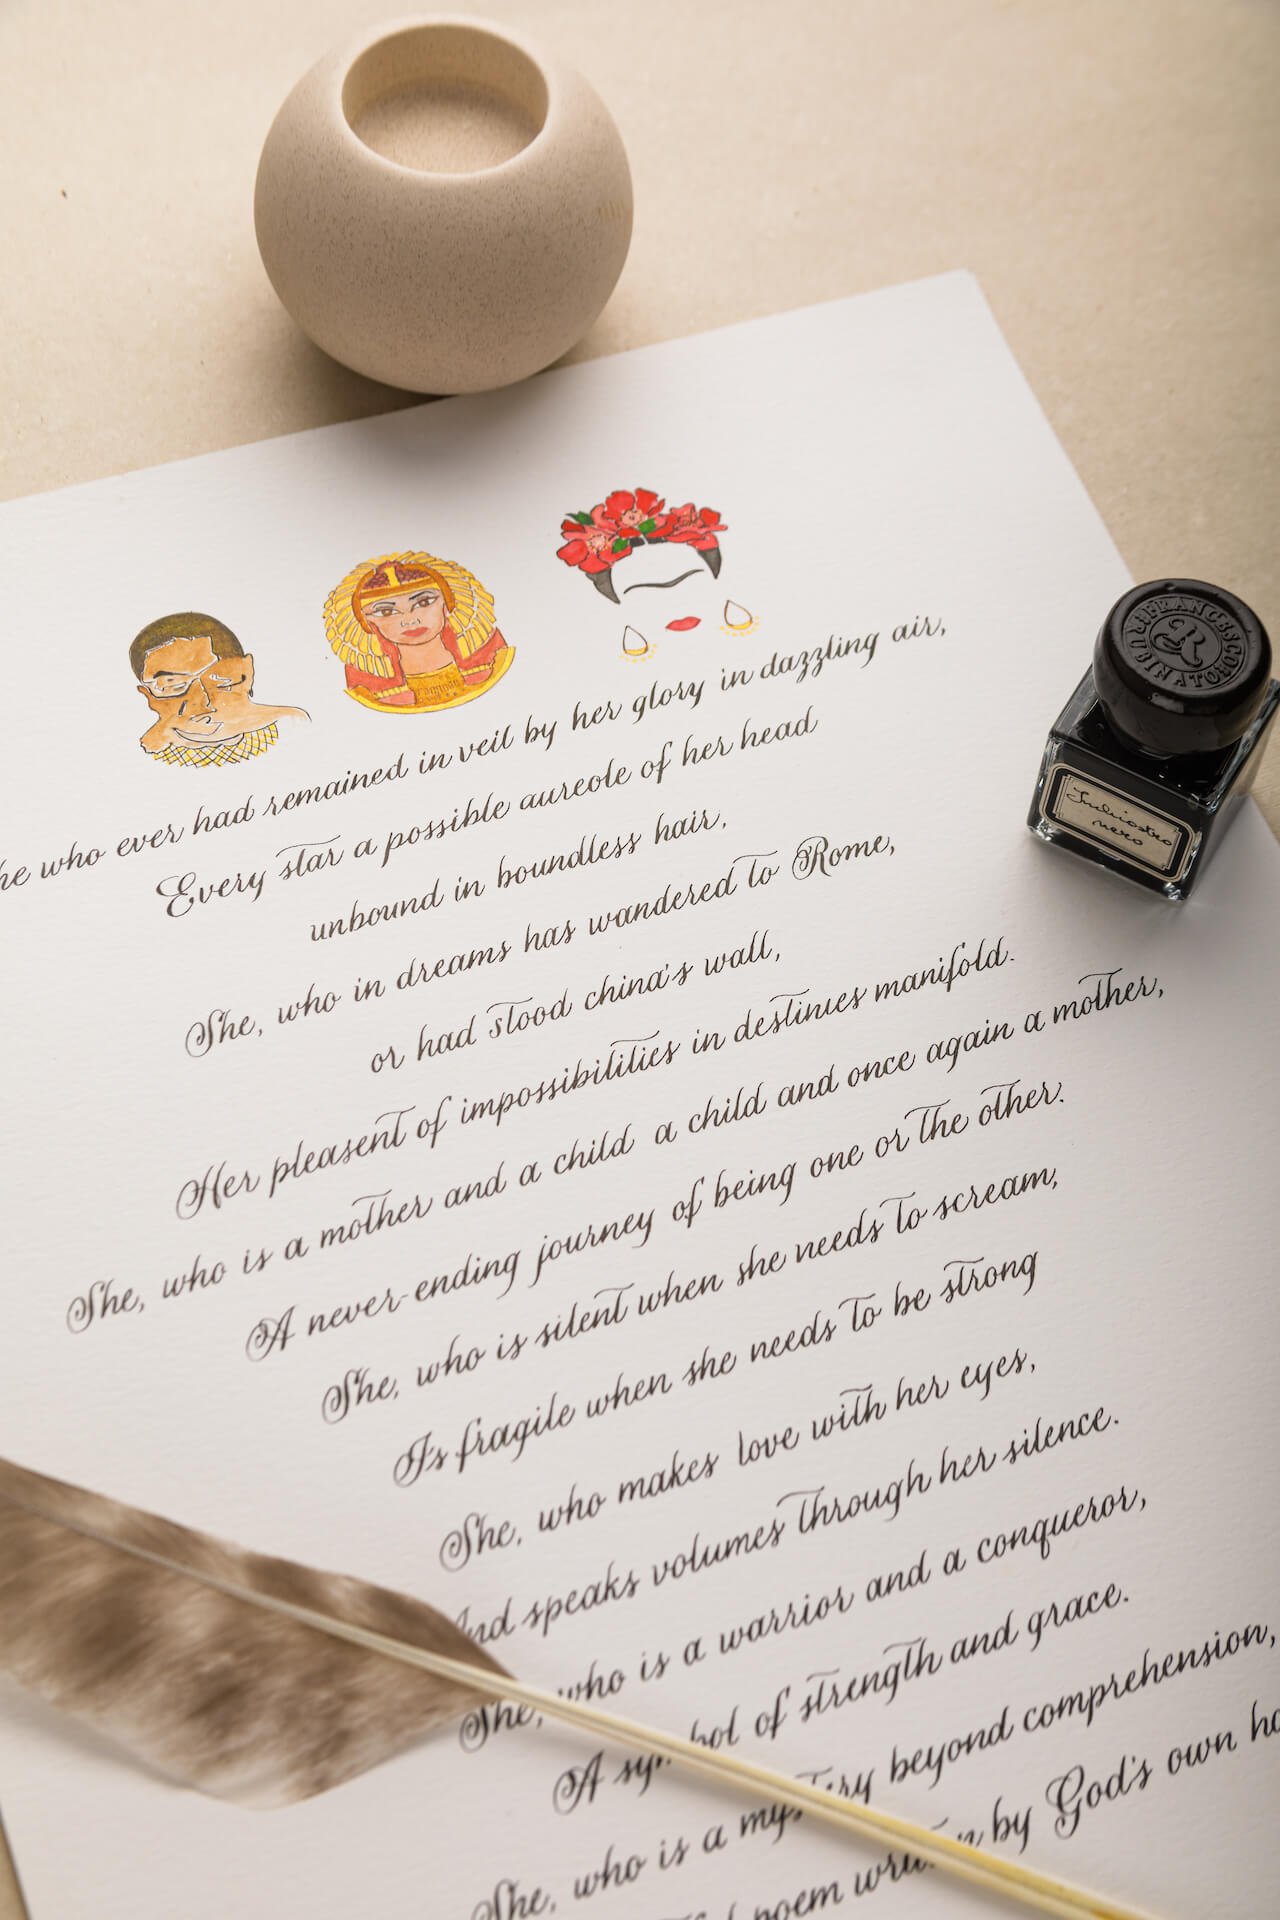 he who ever had remained in veil by her glory in dazzling air,
Every star a possible aureole of her head
unbound in boundless hair,
She, who in dreams has wandered to Rome,
or had stood china's wall,
Her pleasent of impossibilities in destinies manifold.
She, who is a mother and a child a child and once again a mother,
A never-ending journey of being one or the other.
She, who is silent when she needs to scream,
Is fragile when she needs to be strong
She, who makes love with her eyes,
And speaks volumes through her silence.
She, who is a warrior and a conqueror,
A symbol of strength and grace.
She, who is a mystery beyond comprehension,
poem written by God's own
FRANCESCO RUBINATO
R
Inchiostro
nero